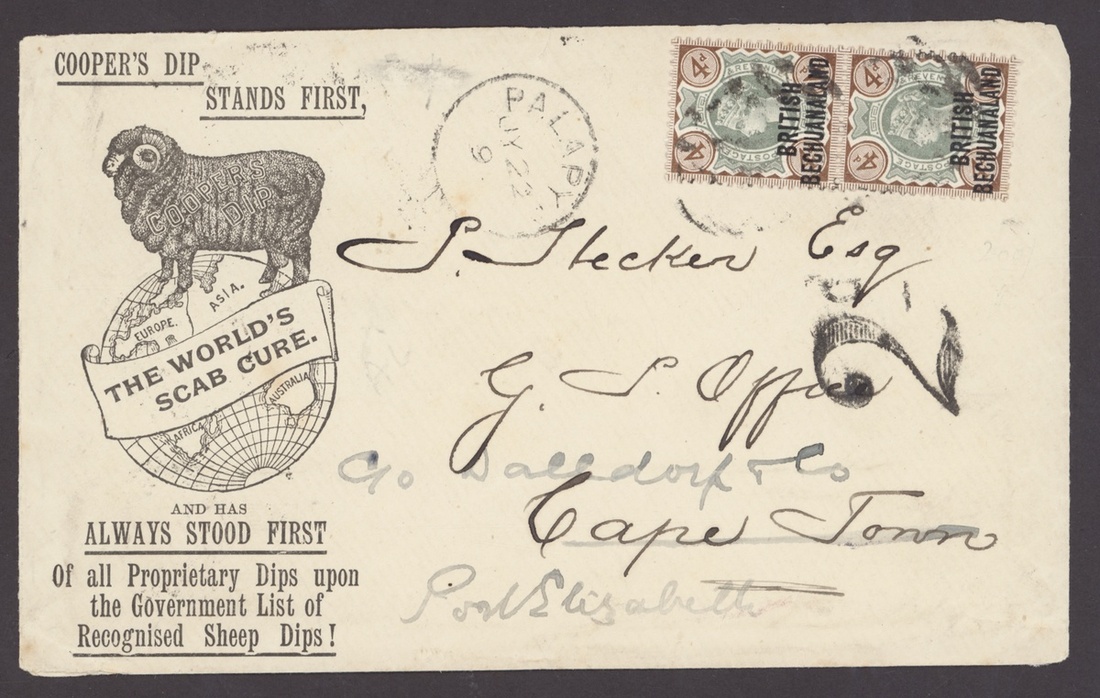 COOPER'S DIP
STANDS FIRST,
COOPER'S
DIP
EUROPE.
ASIA.
THE WORLD'S
SCAB CURE.
AFRICA
AUSTRALIA
AND HAS
ALWAYS STOOD FIRST
Of all Proprietary Dips upon
the Government List of
Recognised Sheep Dips!
PALAPY
22
9
4d
4d
POSTAGE
BRITISH
BECHUANALAND
4d
4d
POSTAGE
BRITISH
BECHUANALAND
S. Stecker Esq
2d
G. S. Office
C/o Dalldorf & Co
Cape Town
Port Elizabeth